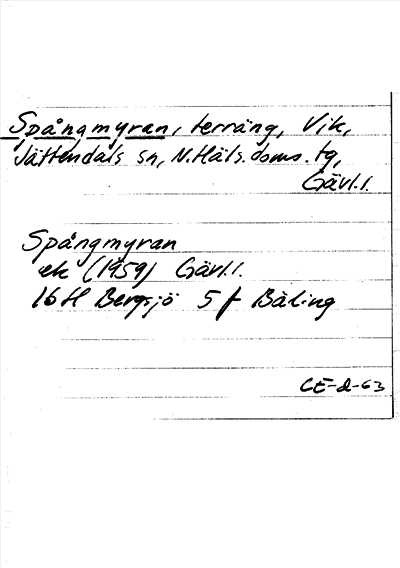 Spångmyran, terräng, Vik,
Jättendals sn, N.Häls.doms.tg,
Gävl.l.
Spångmyran
ek (1959) Gävl.l.
16H Bergsjö 5 f Bäling
CE-d-63